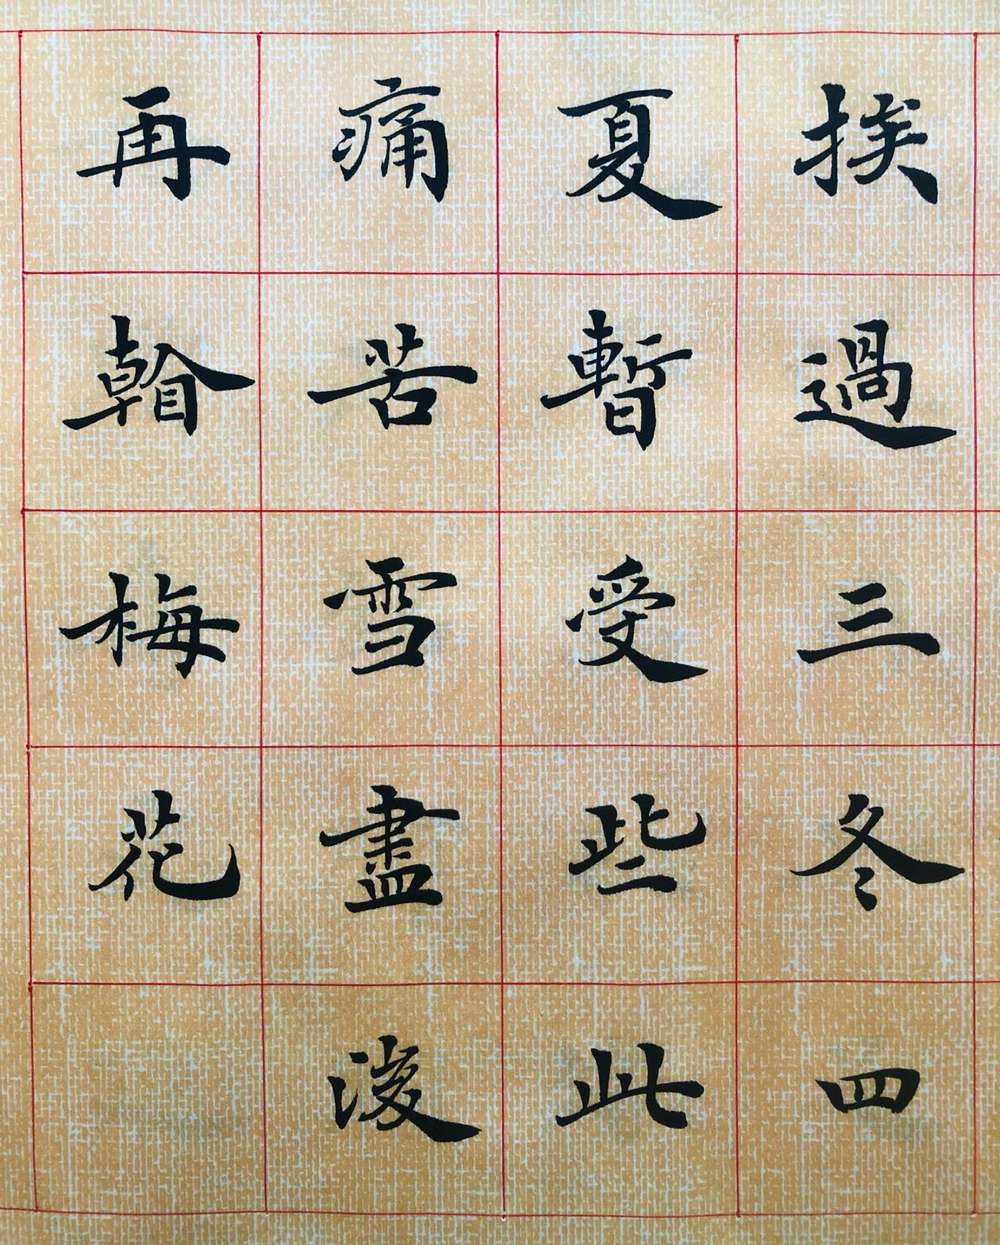 挨過三冬四
夏暫受些此
痛苦雪盡後
再看梅花